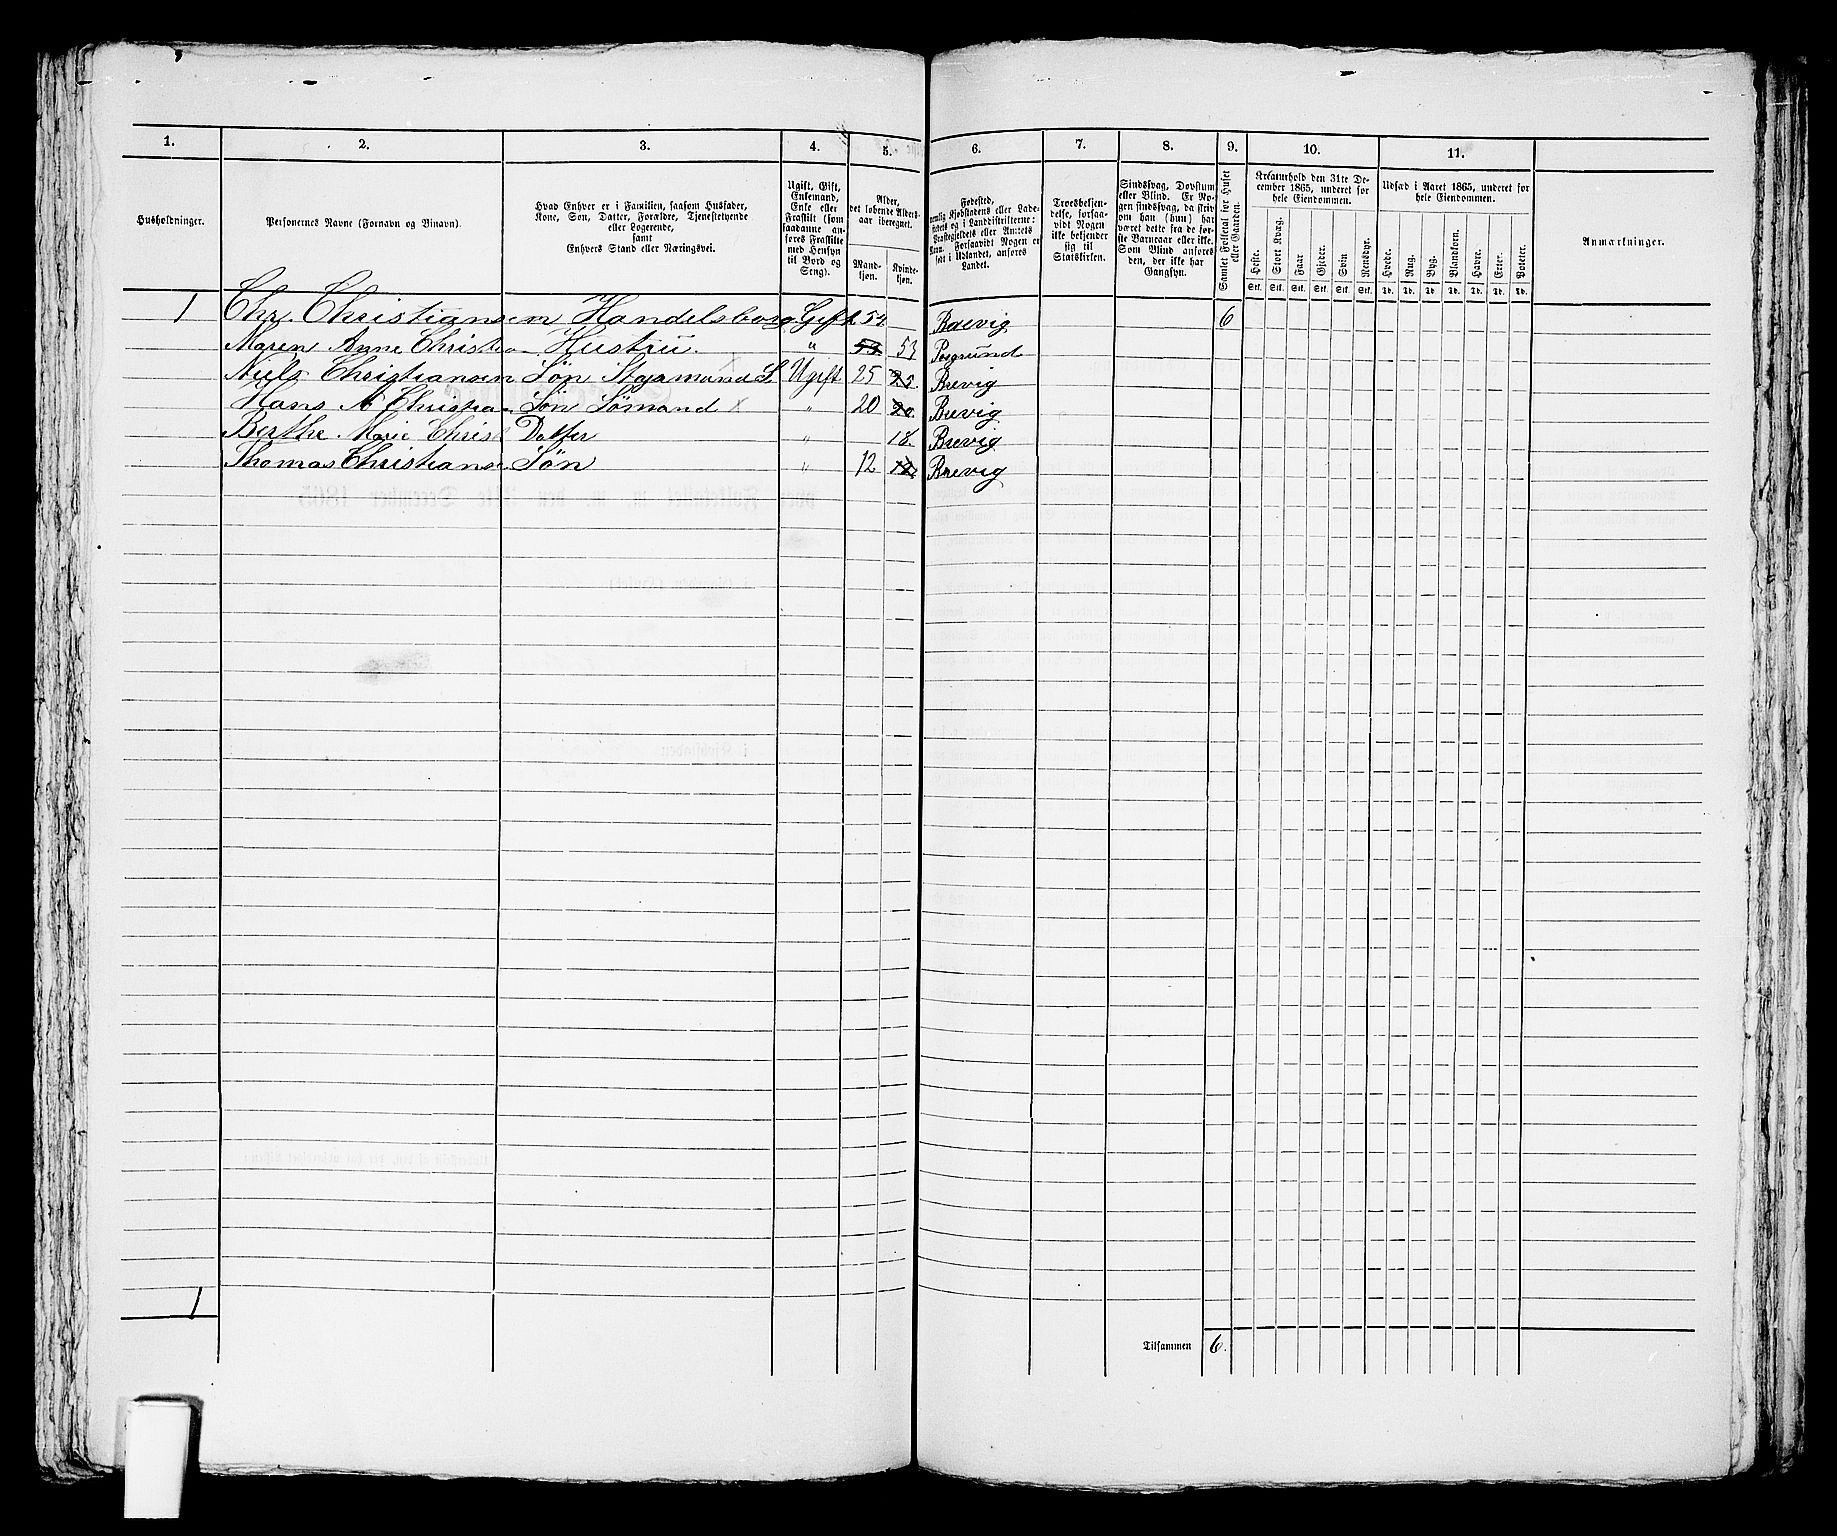 1. 2. 3. 4. 5. 6. 7. 8. 9. 10. 11.
Husholdninger.
Personernes Navne (Fornavn og Binavn).
Hvad Enhver er i Familien, saasom Husfader,
Kone, Søn, Datter, Forældre, Tjenestetyende
eller Logerende,
samt
Enhvers Stand eller Næringsvei.
Ugift, Gift,
Enkemand,
Enke eller
Fraskilt (som
saadanne an-
føres Fraskilte
med Hensyn
til Bord og
Seng).
Alder,
det løbende Alders-
aar iberegnet.
Mand-
kjøn.
Kvinde-
kjøn.
Fødested,
nemlig Kjøbstadens eller Lade-
stedets og i Landdistrikterne:
Præstegjeldets eller Amtets
Navn. Forsaavidt Nogen er
født i Udlandet, anføres
Landet.
Troesbekjen-
delse, forsaa-
vidt Nogen
ikke bekjender
sig til
Statskirken.
Sindssvag, Døvstum
eller Blind. Er No-
gen sindssvag, da skriv
om han (hun) har
været dette fra de før-
ste Barneaar eller ikke.
Som Blind anføres
den, der ikke har
Gangsyn.
Samlet Folketal for Huset
eller Gaarden.
Kreaturhold den 31te De-
cember 1865, underet for
hele Eiendommen.
Heste. Stort Kvæg. Faar. Gjeder. Svin. Rensdyr.
Stk. Stk. Stk. Stk. Stk. Stk.
Udsæd i Aaret 1865, underet for
hele Eiendommen.
Hvede. Rug. Byg. Blandkorn. Havre. Erter. Poteter.
Td. Td. Td. Td. Td. Td. Td.
Anmærkninger.
1 Chr. Christiansen Handelsborg Gift 54 Brevig 6
Maren Anne Christia Hustru. " 53 53 Posgrund
Niels Christiansen Søn Ugift 25 25. Brevig
Hans N Christia Søn Sømand x " 20 20. Brevig
Berthe Marie Christ Datter " 18. Brevig
Thomas Christianse Søn " 12 12 Brevig
1
Tilsammen 6.